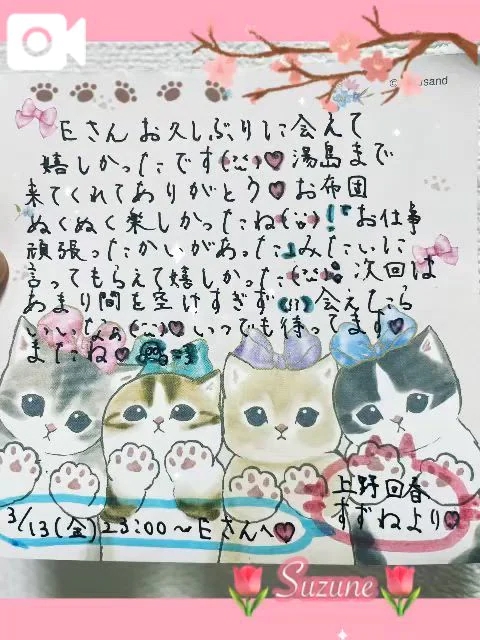 Eさん お久しぶりに会えて
嬉しかったです♥ 湯島まで
来てくれてありがとう♥ お布団
ぬくぬく楽しかったね! お仕事
頑張ったかいがあった」みたいに
言ってもらえて嬉しかった 次回は
あまり間を空けすぎず 会えたら
いいなぁ♥ いつでも待ってます♥
またね♥
上野回春
すずねより♡
3/13(金) 23:00〜Eさんへ♥
Suzune